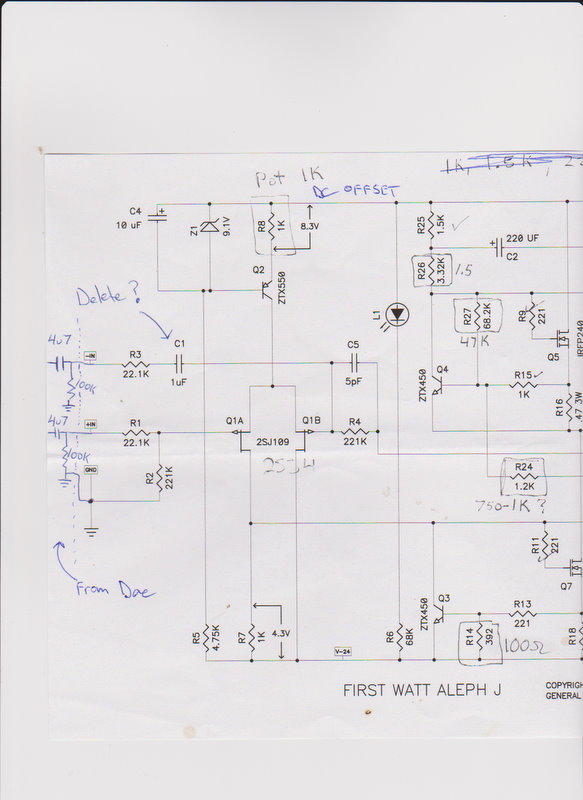 Pot 1K
1K, 1.5K, 2
DC OFFSET
C4
+
10 uF
Z1
9.1V
R8
1K
8.3V
R25
1.5K
+
220 UF
C2
R26
3.32K
1.5
Q2
ZTX550
Delete?
L1
R27
68.2K
47K
R9
221
Q5
IRFP240
4u7
-IN
R3
22.1K
C1
1uF
C5
5pF
100K
Q4
ZTX450
R15
1K
R16
.47 3W
4u7
+IN
R1
22.1K
Q1A
Q1B
2SJ109
2SJ74
R4
221K
100K
GND
R2
221K
R24
1.2K
750-1K ?
From Dac
R11
221
Q7
Q3
ZTX450
R5
4.75K
R7
1K
4.3V
R6
68K
V-24
R14
392
100Ω
R13
221
R18
FIRST WATT ALEPH J
COPYRIGH
GENERAL